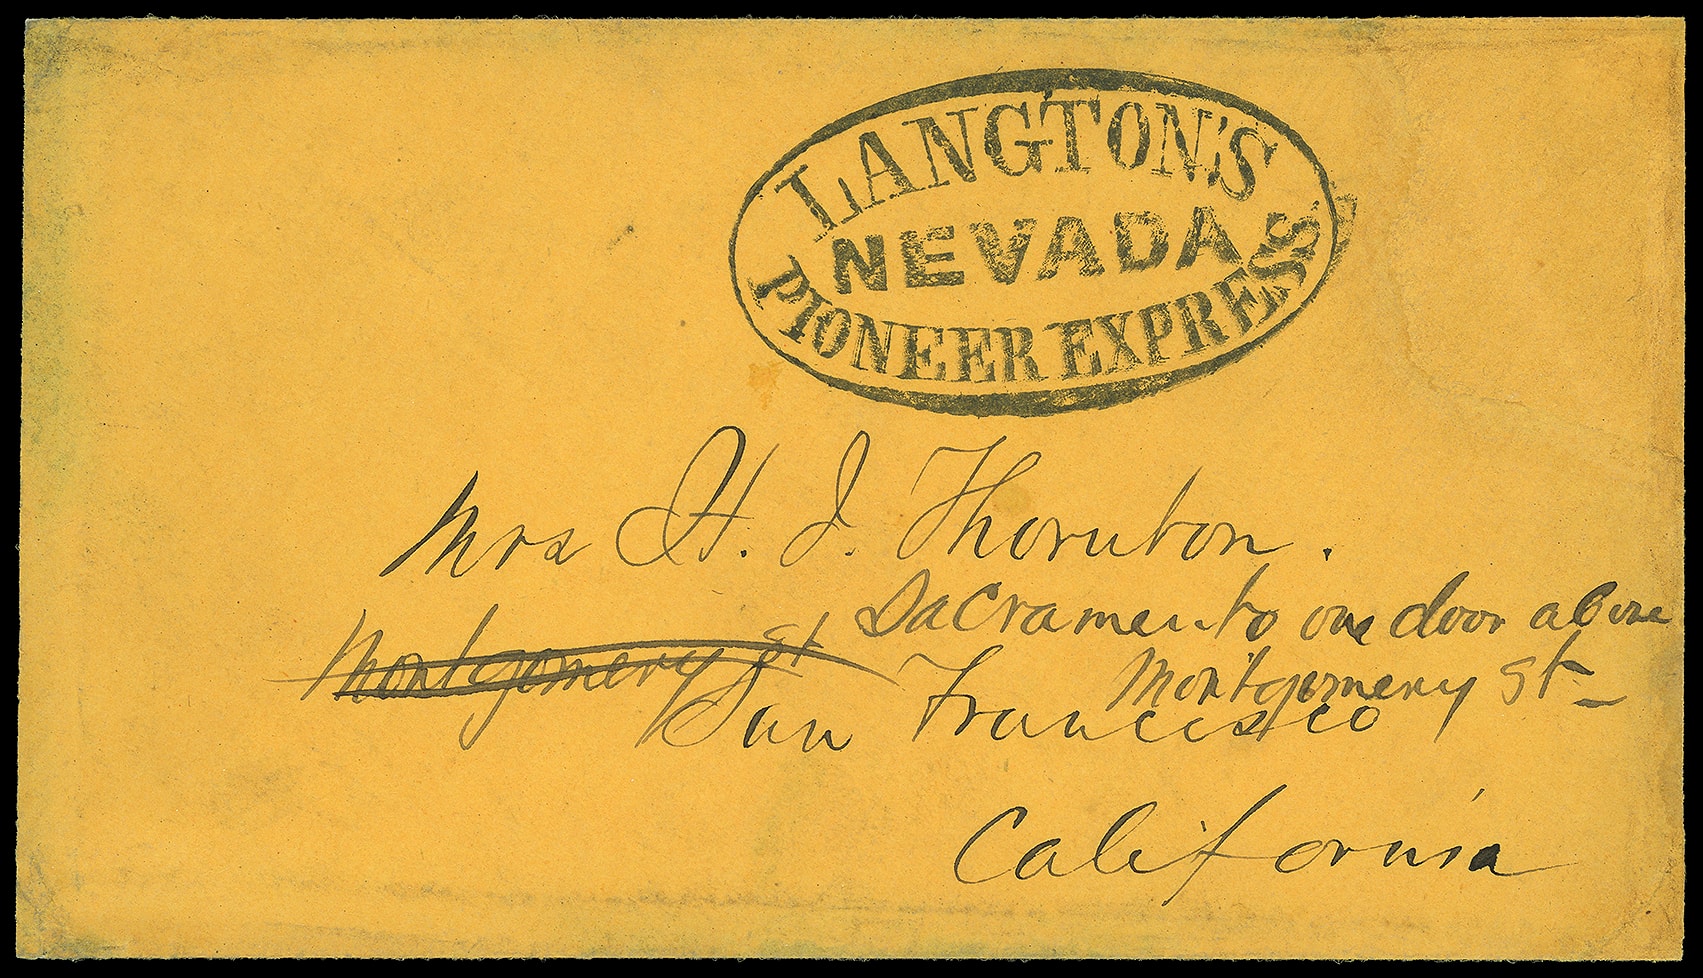 LANGTON'S
NEVADA
PIONEER EXPRESS
Mrs H. I. Thornton.
Sacramento one door above
Montgomery st
Montgomery st
San Francisco
California